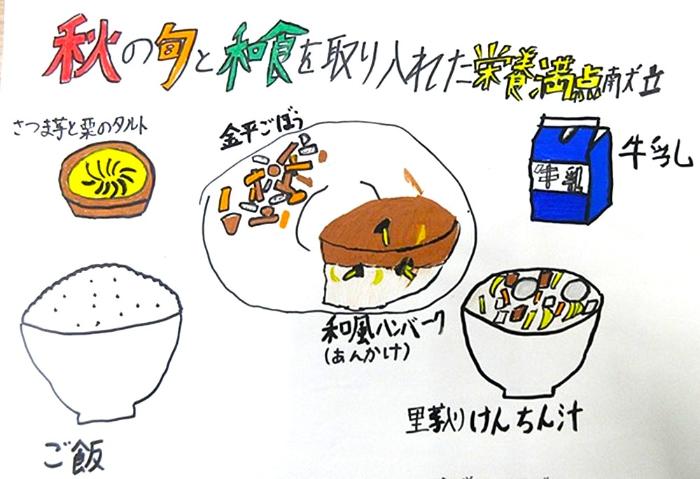 秋の旬と和食を取り入れた栄養満点献立
さつま芋と栗のタルト
金平ごぼう
牛乳
牛乳
和風ハンバーグ
(あんかけ)
里芋入りけんちん汁
ご飯